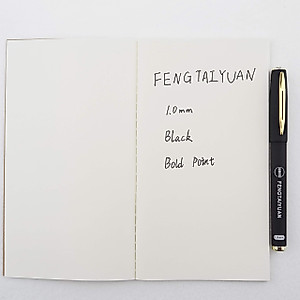 FENGTAIYUAN
1.0mm
Black
Bold Point
FENGTAIYUAN